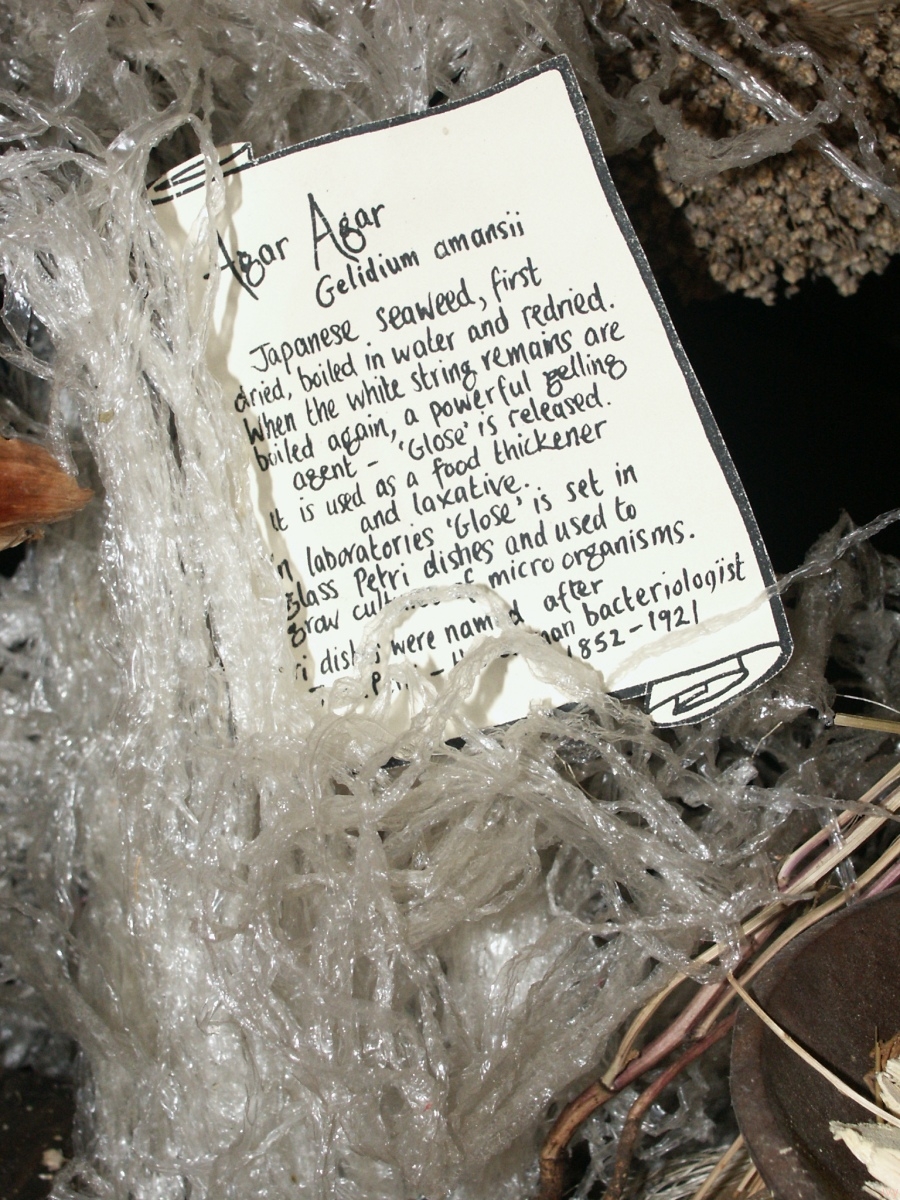 Agar Agar
Gelidium amansii
Japanese seaweed, first
dried, boiled in water and redried.
When the white string remains are
boiled again, a powerful gelling
agent - 'Glose' is released.
it is used as a food thickener
and laxative.
in laboratories 'Glose' is set in
glass Petri dishes and used to
grow of micro organisms.
were after
bacteriologist
1852-1921